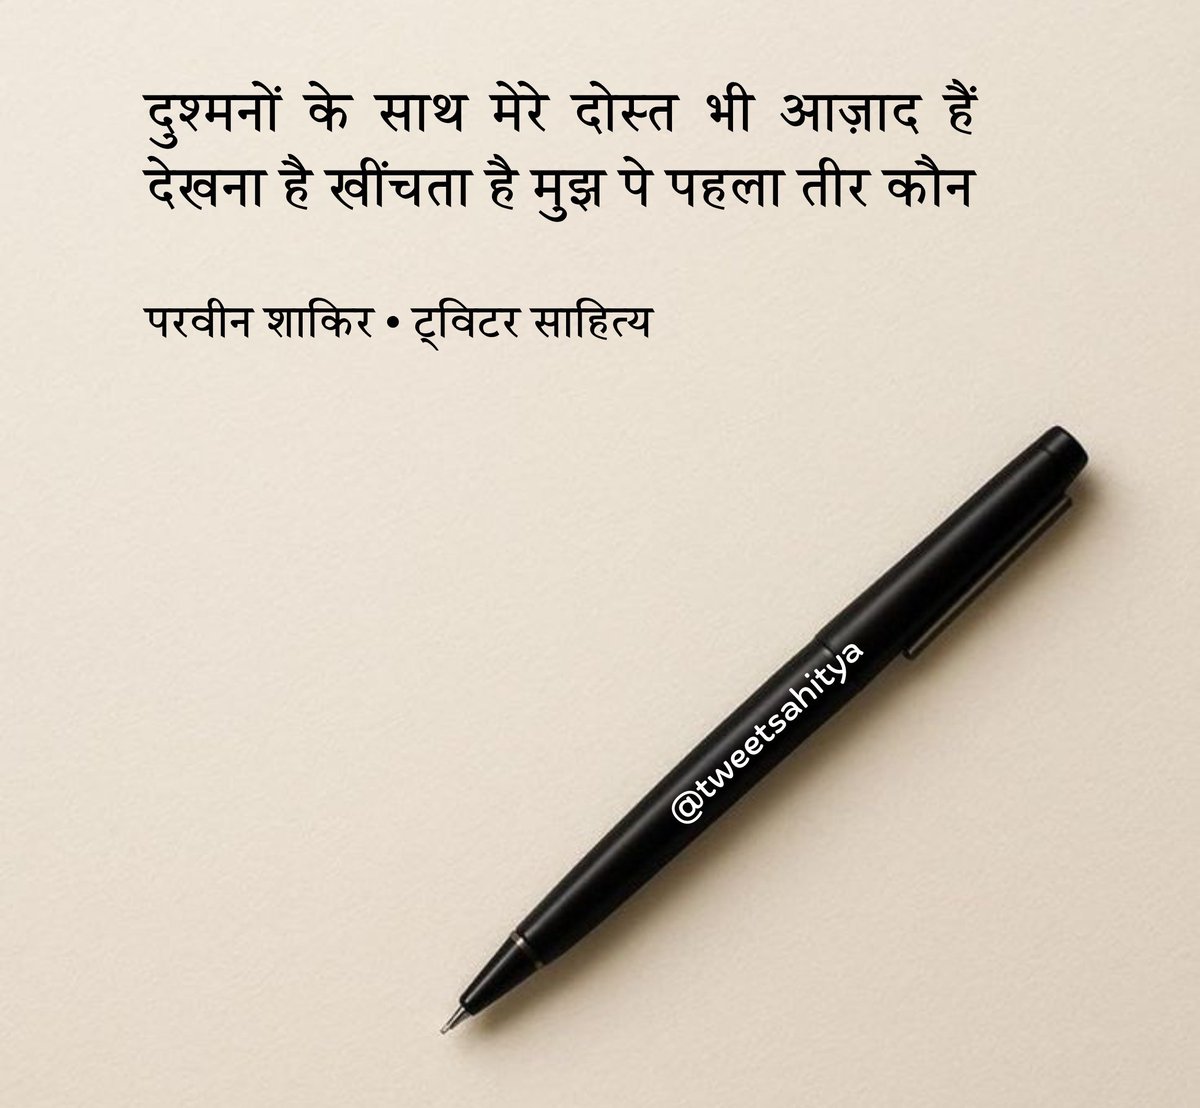 दुश्मनों के साथ मेरे दोस्त भी आज़ाद हैं
देखना है खींचता है मुझ पे पहला तीर कौन
परवीन शाकिर • ट्विटर साहित्य
@tweetsahitya